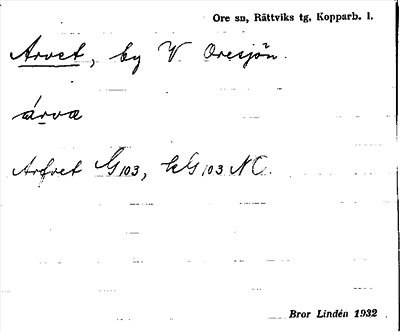 Ore sn, Rättviks tg, Kopparb. l.
Arvet, by V Oresjön.
árva
Arfvet G103, kG103 NO.
Bror Lindén 1932